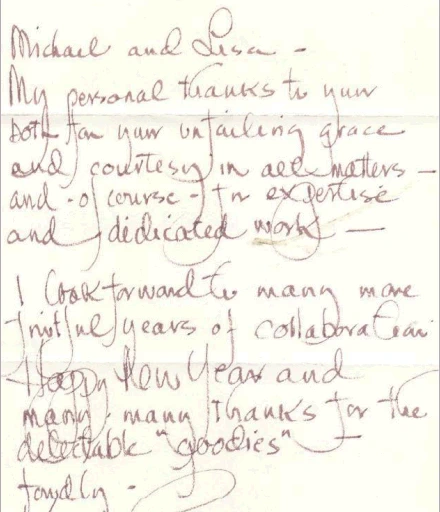 Michael and Lisa -
My personal thanks to your
both for your unfailing grace
and courtesy in all matters -
and - of course - for expertise
and dedicated work -
I look forward to many more
fruitful years of collaboration
Happy New Year and
many, many thanks for the
delectable "goodies" -
fondly -